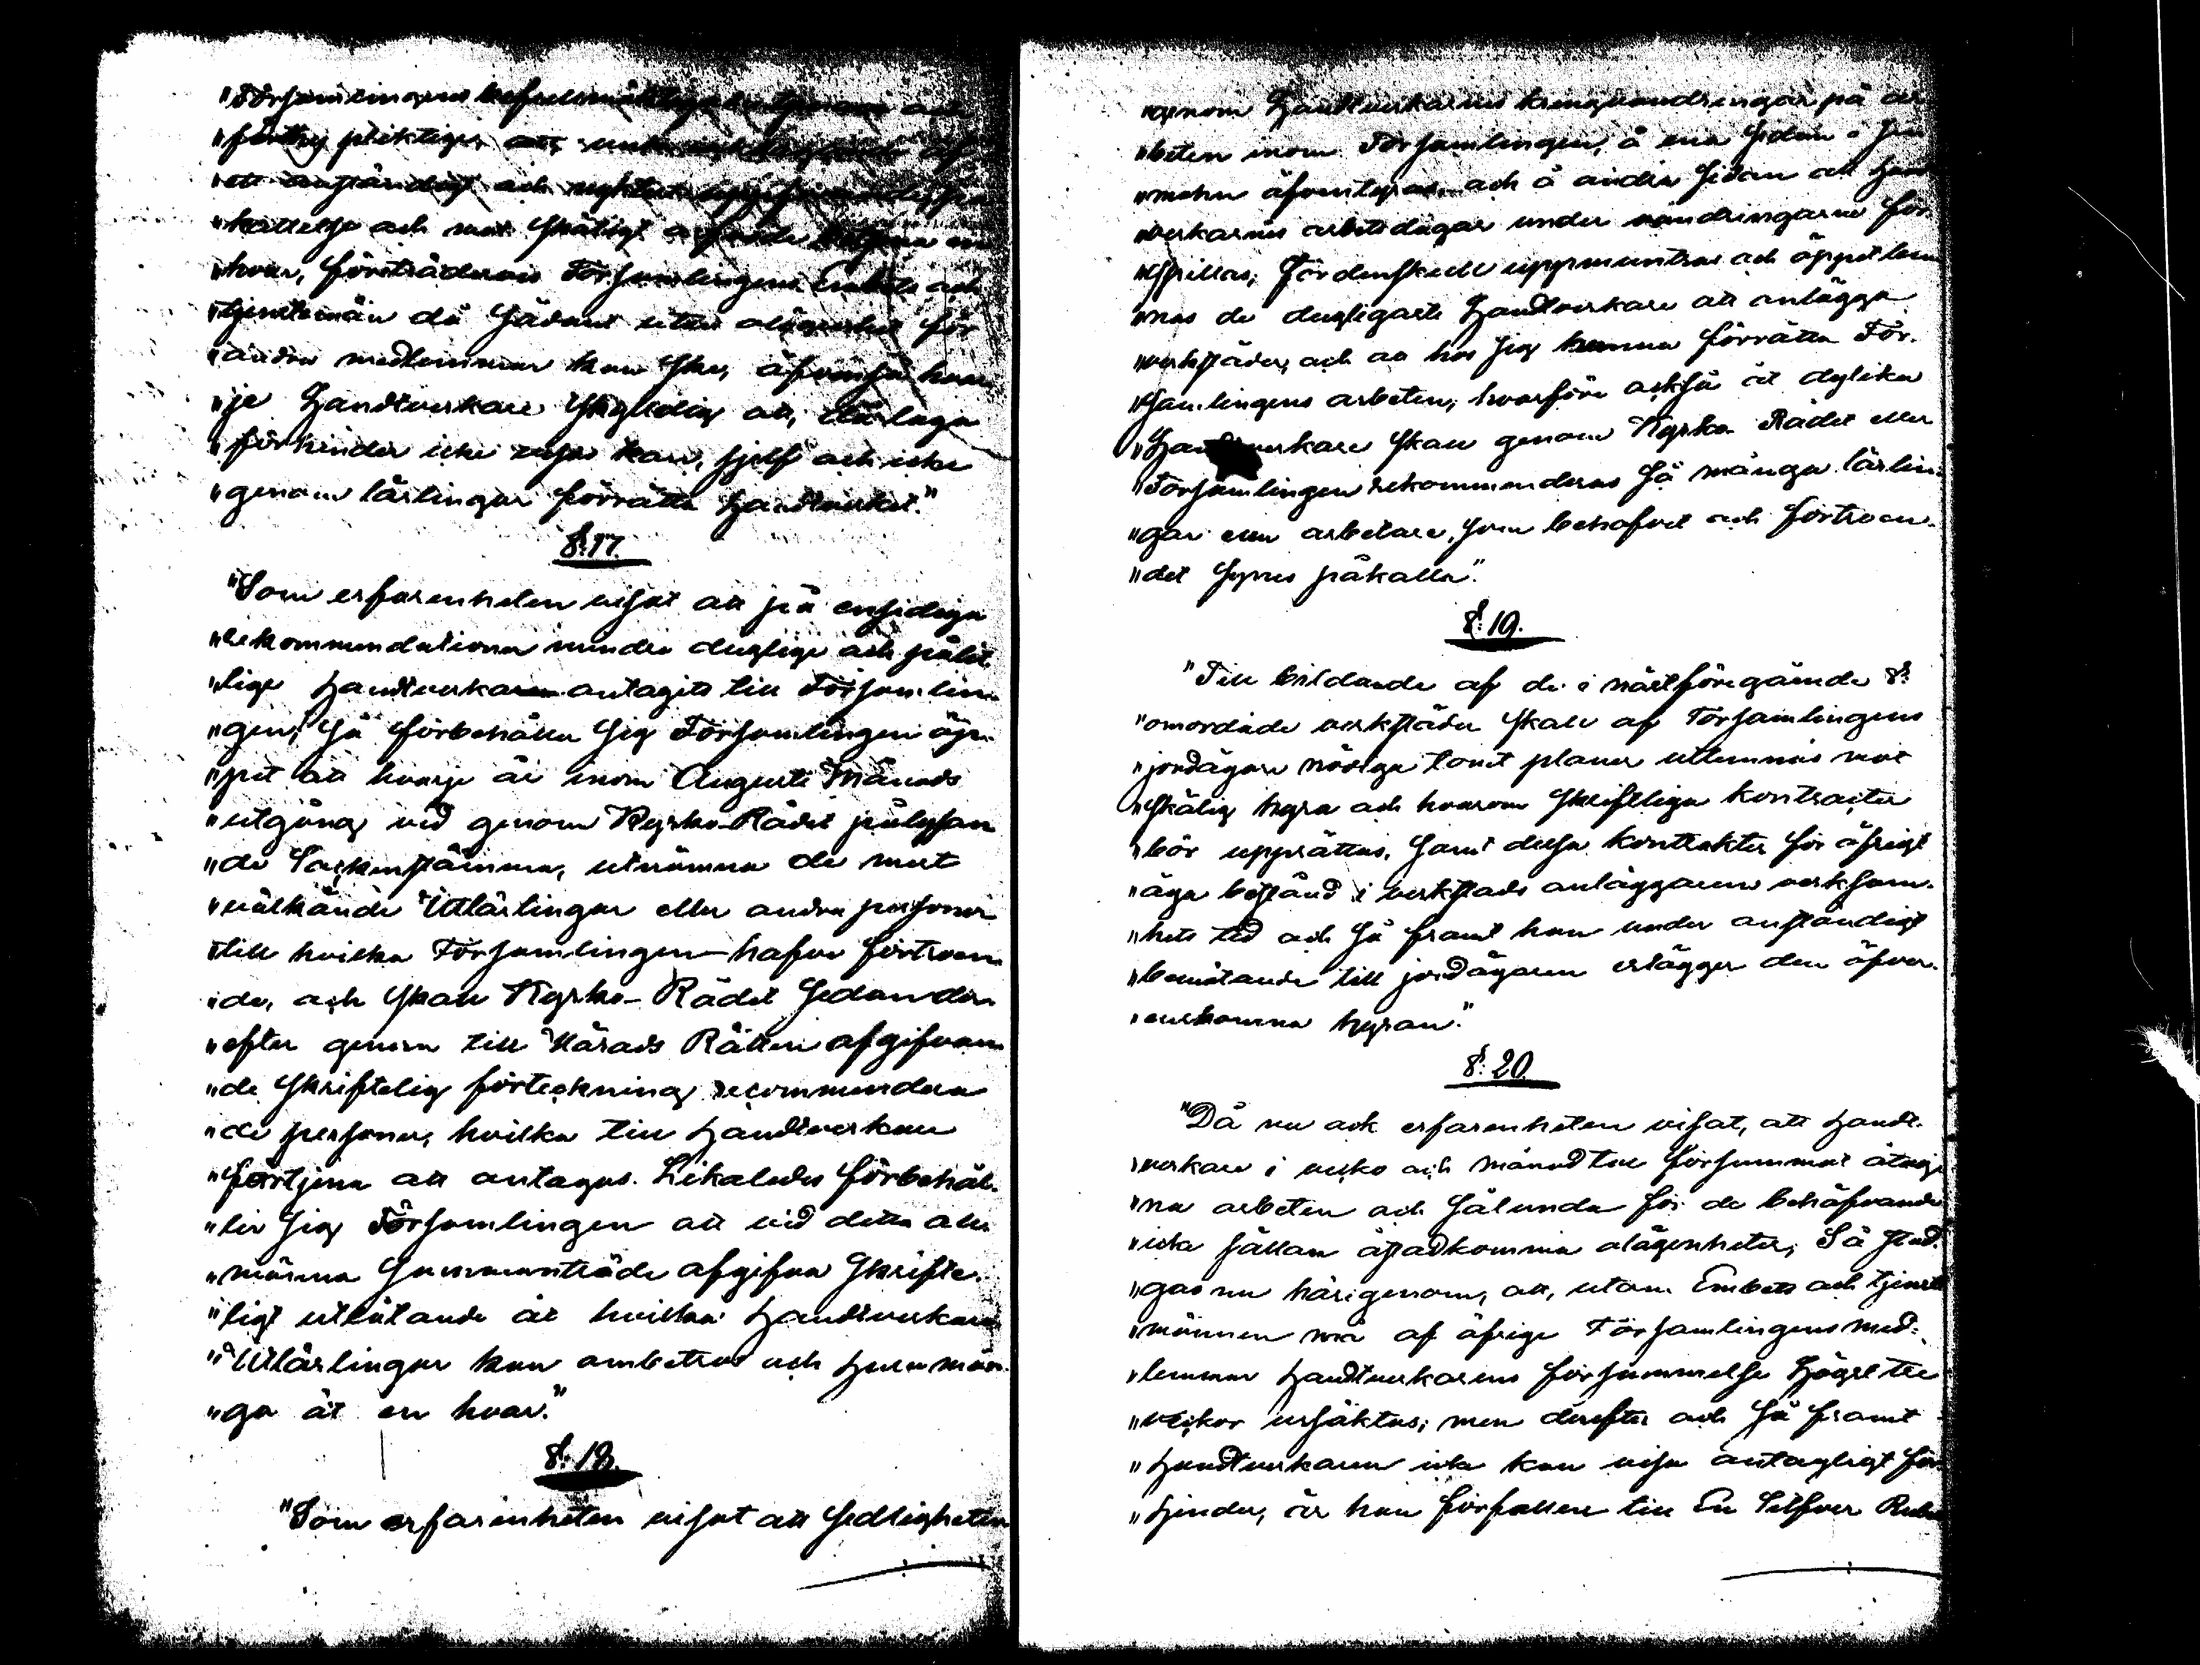 "Församlingens
"
"
"kallelse och mot skäligt
"hvar, företrädesvis Församlingens Embets och
"tjenstemän då sådant utan olägenhet för
"andra medlemmar kan ske, äfvenså hvar
"je Handtverkare skyldig att, där laga
"förhinder icke visas kan, sjelf och icke
"genom lärlingar förrätta handtverket."
§. 17.
"Som erfarenheten visat att på ensidiga
"rekommendationer mindre duglige och pålit
"lige handtverkare antagits till Församlin
"gen, så förbehåller sig Församlingen öp-
"pet att hvarje år inom Augusti Månads
"utgång vid genom Kyrko-Rådet pålysan
"de Sockenstämma, utnämna de mest
"välkände Utlärlingar eller andra personer
"till hvilka Församlingen hafver förtroen
"de, och skall Kyrko-Rådet sedan der
"efter genom till Härads Rätten afgifvan
"de skriftelig förteckning recommendera
"de personer, hvilka till handtverkare
"förtjena att antagas. Likaledes förbehål-
"ler sig Församlingen att vid detta all
"männa sammanträde afgifva skrifte-
"ligt utlåtande åt hvilka handtverkare
"Utlärlingar kan ombetros och huru mån-
"ga åt en hvar."
§. 18.
"Som erfarenheten visat att sedligheten
"genom Handtverkarnes kringvandringar på ar
"beten inom Församlingen, å ena sidan i
"mohn äfventyras och å andra sidan att hand
"verkarnes arbetsdagar under vandringarne för-
"spillas; Fördenskull uppmuntras och öppet lem
"nas de dugligaste Handtverkare att anlägga
"verkstäder, och att hos sig kunna förrätta För-
"samlingens arbeten; hvarföre också åt dylika
"Handtverkare skall genom Kyrko Rådet eller
"Församlingen rekommenderas så många lärlin-
"gar som arbetare, som behofvet och förtroen-
"det synes påkalla".
§. 19.
"Till bildande af de i nästföregående §.
"omordade verkstäder skall af Församlingens
"jordägare nödiga tomt planer utlemnas mot
"skälig hyra och hvarom skriftliga kontracter
"bör upprättas, samt dessa kontrakter för öfrigt
"äga bestånd i verkstads anläggarens verksam-
"hets tid och så framt han under anständigt
"bemötande till jordägaren erlägger den öfver-
"enskomna hyran."
§. 20.
"Då nu ock erfarenheten visat, att handt-
"verkare i vecko och månadtal försummat åtag
"na arbeten och sålunda för de behöfvande
"icke sällan åstadkomma olägenheter; Så stad-
"gas nu härigenom, att, utom Embets och tjenste
"männen må af öfrige Församlingens med-
"lemmar handtverkarens försummelse högst tre
"veckor ursäktas; men derefter och så framt
"handtverkaren icke kan visa antagligt för-
"hinder, är han förfallen till En Silfver Rubel